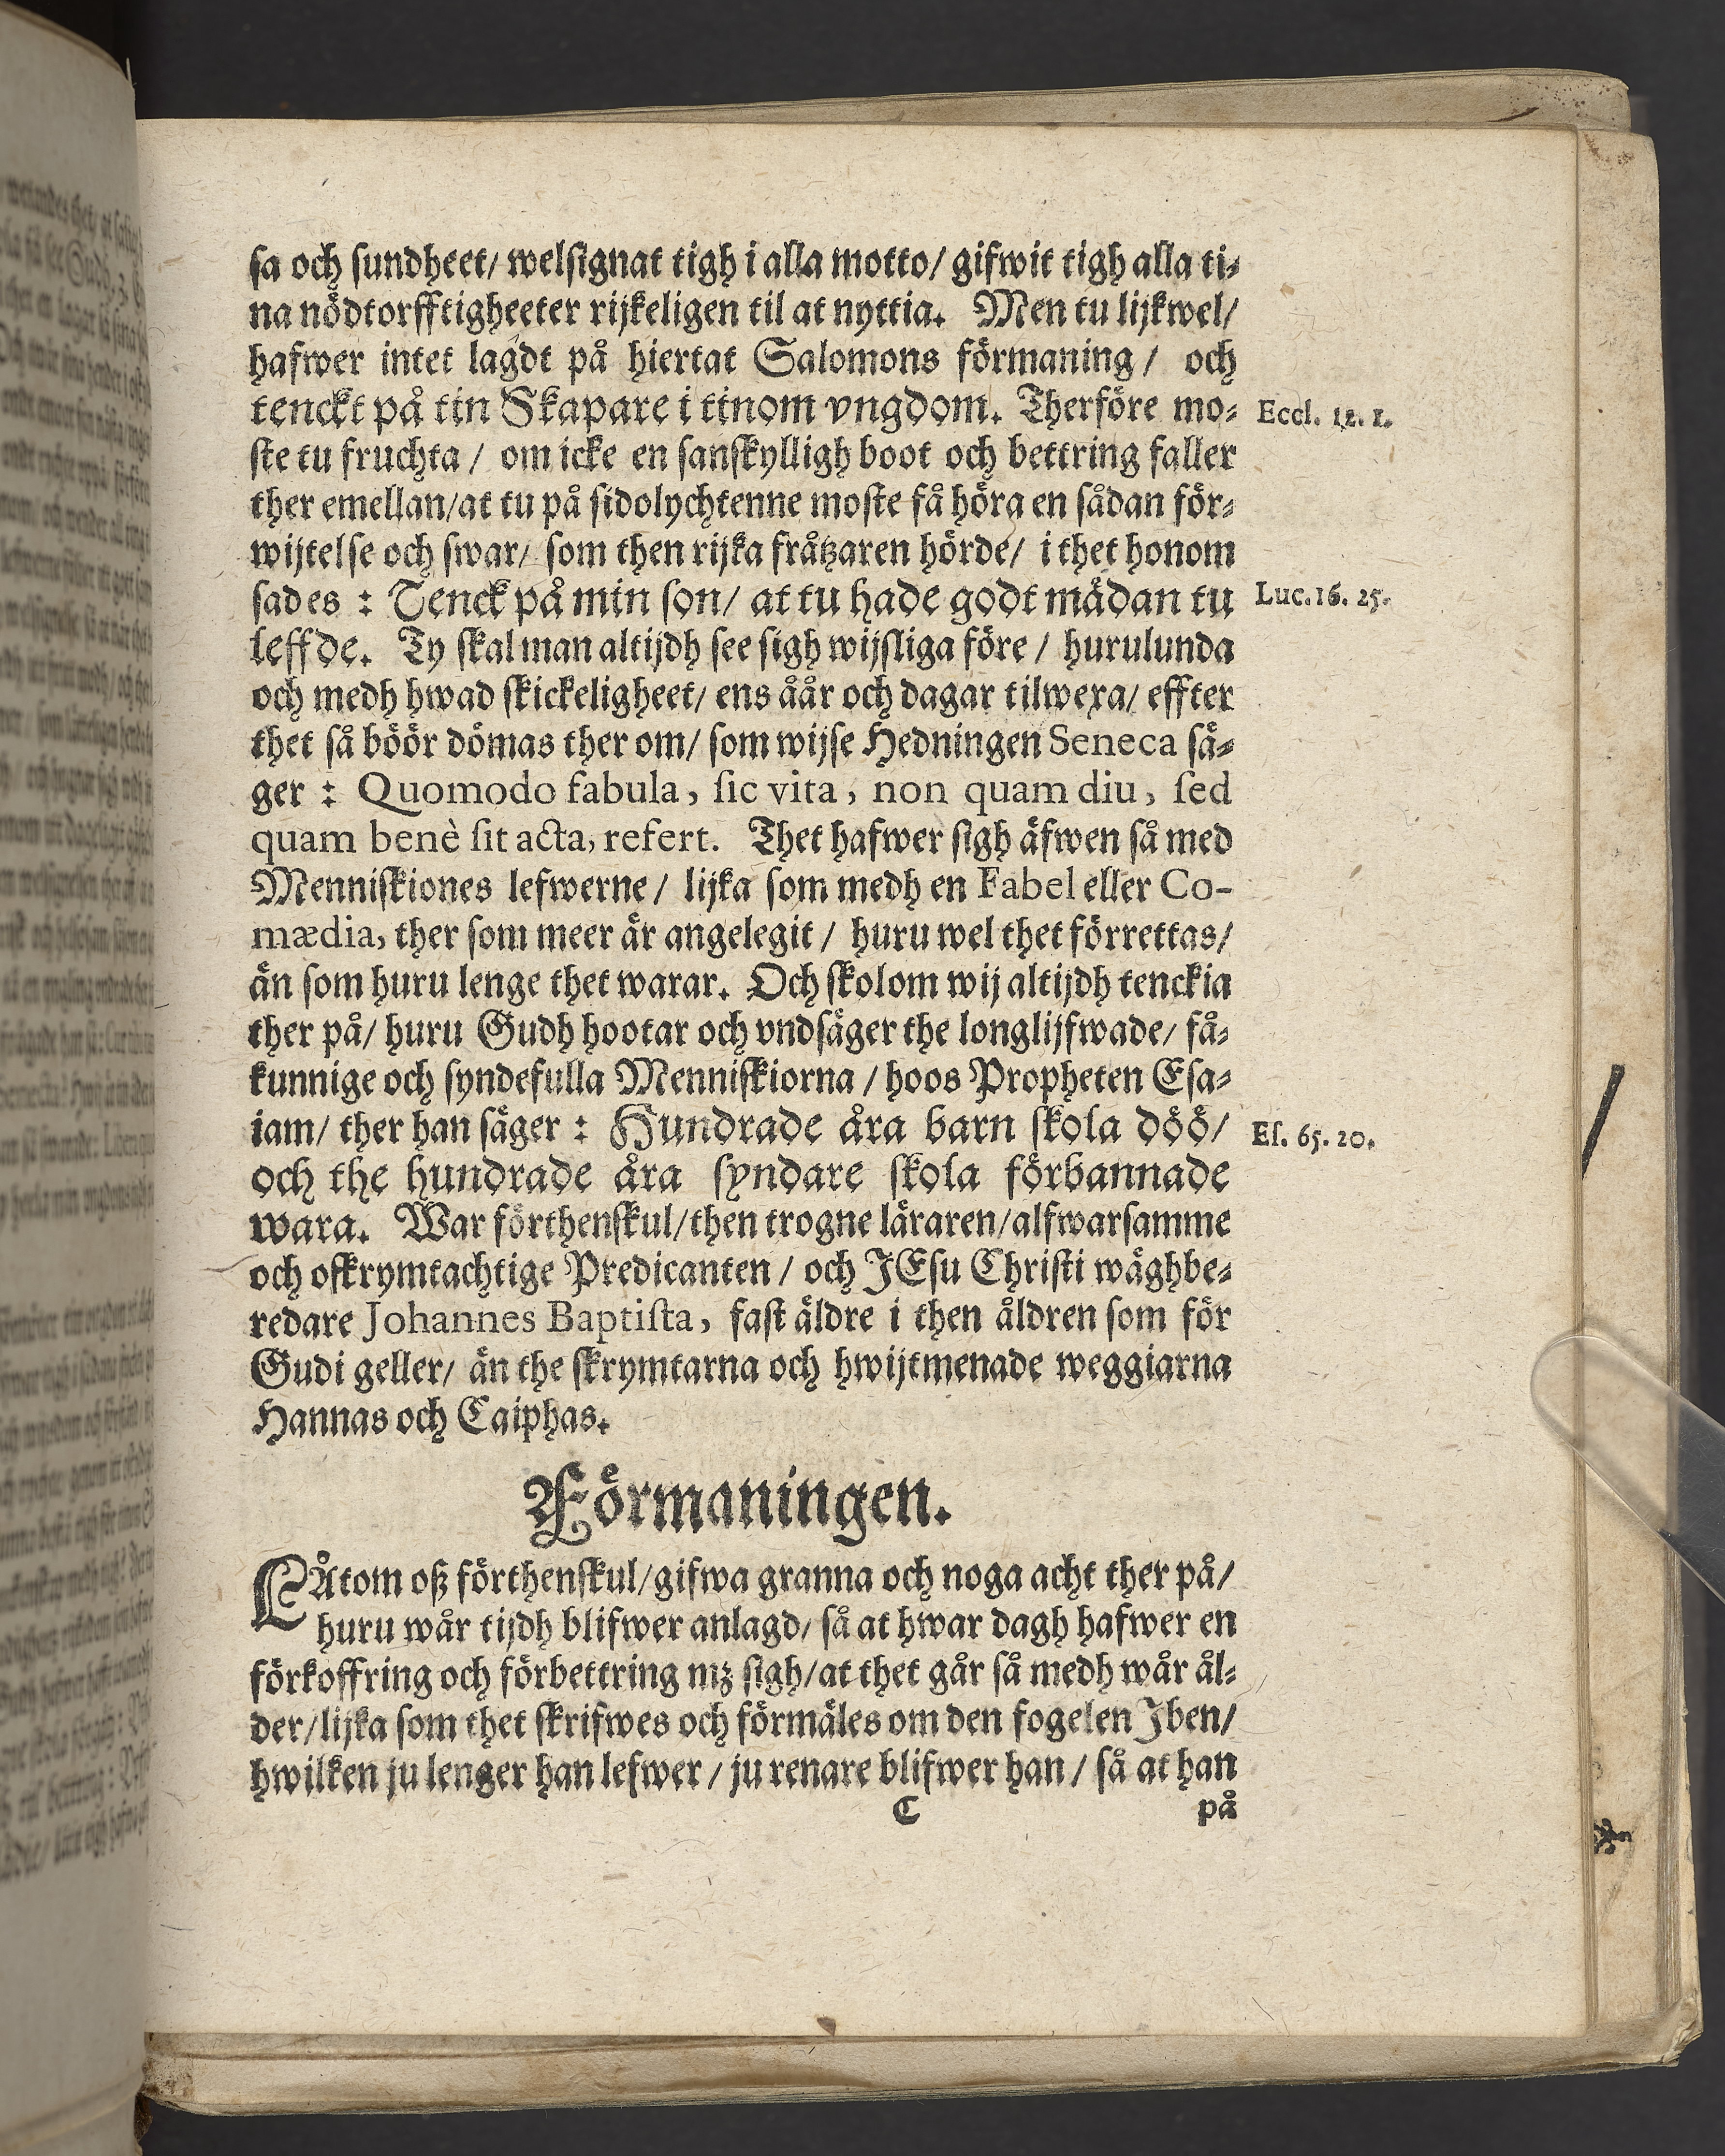 sa och sundheet/ welsignat tigh i alla motto/ gifwit tigh alla ti-
na nödtorfftigheeter rijkeligen til at nyttia. Men tu lijkwel/
hafwer intet lagdt på hiertat Salomons förmaning/ och
tenckt på tin Skapare i tinom vngdom. Therföre mo-
Eccl. 12. 1.
ste tu fruchta/ om icke en sanskylligh boot och bettring faller
ther emellan/at tu på sidolychtenne moste få höra en sådan för-
wijtelse och swar/ som then rijka fråtzaren hörde/ i thet honom
sades : Tenck på min son/ at tu hade godt mädan tu
Luc. 16. 25.
leffde. Ty skal man altijdh see sigh wijsliga före/ hurulunda
och medh hwad skickeligheet/ ens åår och dagar tilwexa/ effter
thet så böör dömas ther om/ som wijse Hedningen Seneca sä-
ger : Quomodo fabula, sic vita, non quam diu, sed
quam benè sit acta, refert. Thet hafwer sigh äfwen så med
Menniskiones lefwerne/ lijka som medh en Fabel eller Co-
mædia, ther som meer är angelegit/ huru wel thet förrettas/
än som huru lenge thet warar. Och skolom wij altijdh tenckia
ther på/ huru Gudh hootar och vndsäger the longlijfwade/ få-
kunnige och syndefulla Menniskiorna/ hoos Propheten Esa-
iam/ ther han säger : Hundrade åra barn skola döö/
Es. 65. 20.
och the hundrade åra syndare skola förbannade
wara. War förthenskul/then trogne läraren/alfwarsamme
och oskrymtachtige Predicanten/ och JEsu Christi wäghbe-
redare Johannes Baptista, fast äldre i then åldren som för
Gudi geller/ än the skrymtarna och hwijtmenade weggiarna
Hannas och Caiphas.
Förmaningen.
LÅtom oß förthenskul/gifwa granna och noga acht ther på/
huru wår tijdh blifwer anlagd/ så at hwar dagh hafwer en
förkoffring och förbettring mz sigh/at thet går så medh wår ål-
der/lijka som thet skrifwes och förmäles om den fogelen Jben/
hwilken ju lenger han lefwer/ ju renare blifwer han/ så at han
C på